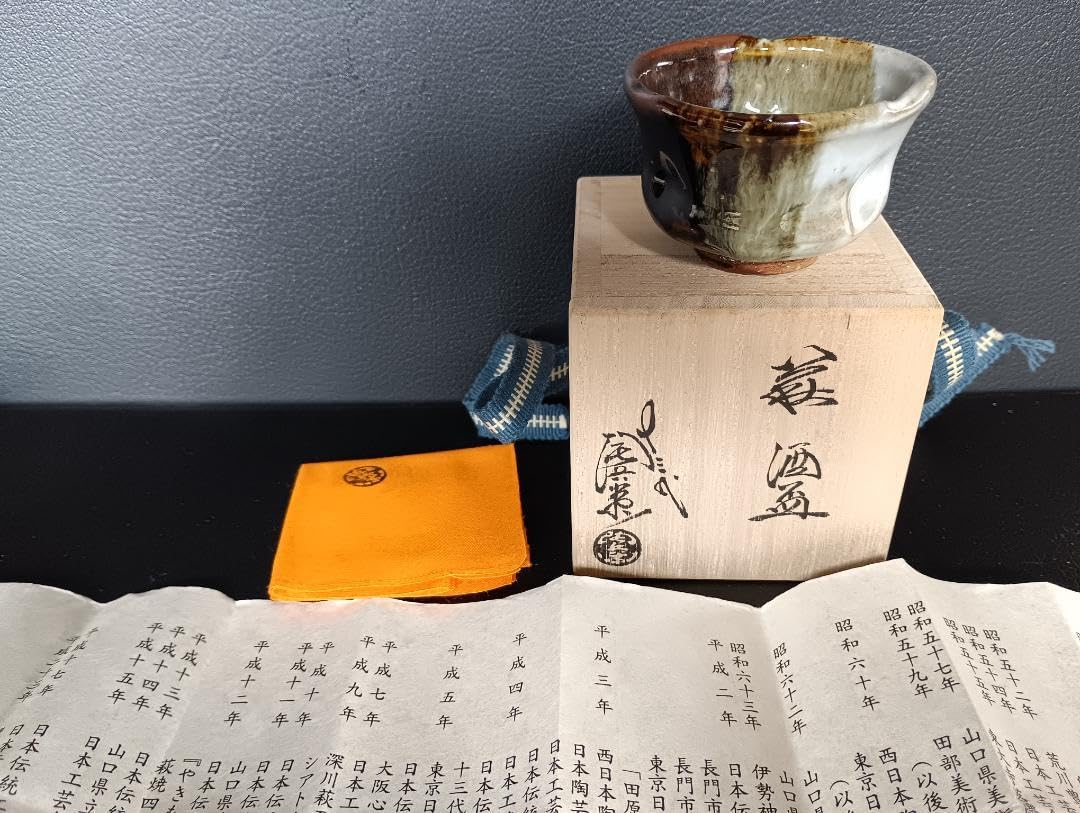 萩 酒盃
十三代
陶兵衛
昭和五十二年
昭和五十四年
昭和五十五年
昭和五十七年
昭和五十九年
昭和六十年
昭和六十二年
昭和六十三年
平成二年
平成三年
平成四年
平成五年
平成七年
平成九年
平成十年
平成十一年
平成十二年
平成十三年
平成十四年
平成十五年
平成十七年
山口県美
田部美術
(以後
西日本陶
東京日
(以
山口
山口県
伊勢神
日本伝
長門市
長門市
東京日
「田原
西日本陶
日本陶芸
日本工芸
日本工
日本伝
十三代
東京
日本伝
大阪心
日本工
深川萩
シアト
日本
日本伝
山口
日本伝
『やきも
萩焼四
日本伝
山口県立
日本工芸
日本伝
日本伝統